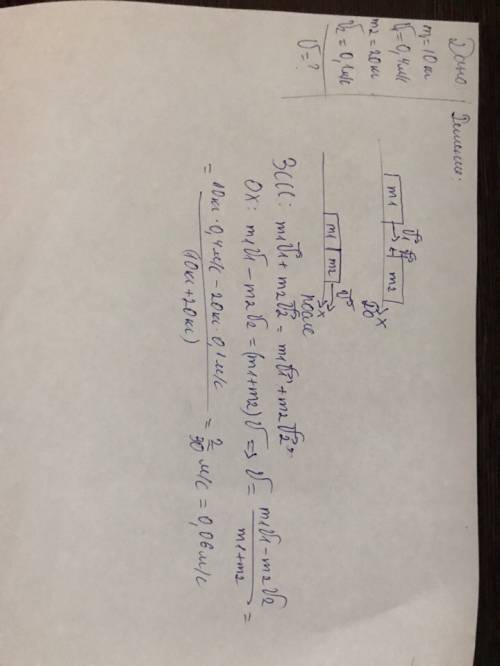 Дано
m1=10кг
V1=0,4м/с
m2=20кг
V2=0,1м/с
V=?
Решение:
m1 V1 V2 m2 X
До
m1 m2 V X
после
ЗСИ: m1V1 + m2V2 = m1V1' + m2V2'
OX: m1V1 - m2V2 = (m1+m2)V => V = (m1V1 - m2V2)/(m1+m2) =
= (10кг·0,4м/с - 20кг·0,1м/с)/(10кг+20кг) = 2/30 м/с = 0,06м/с